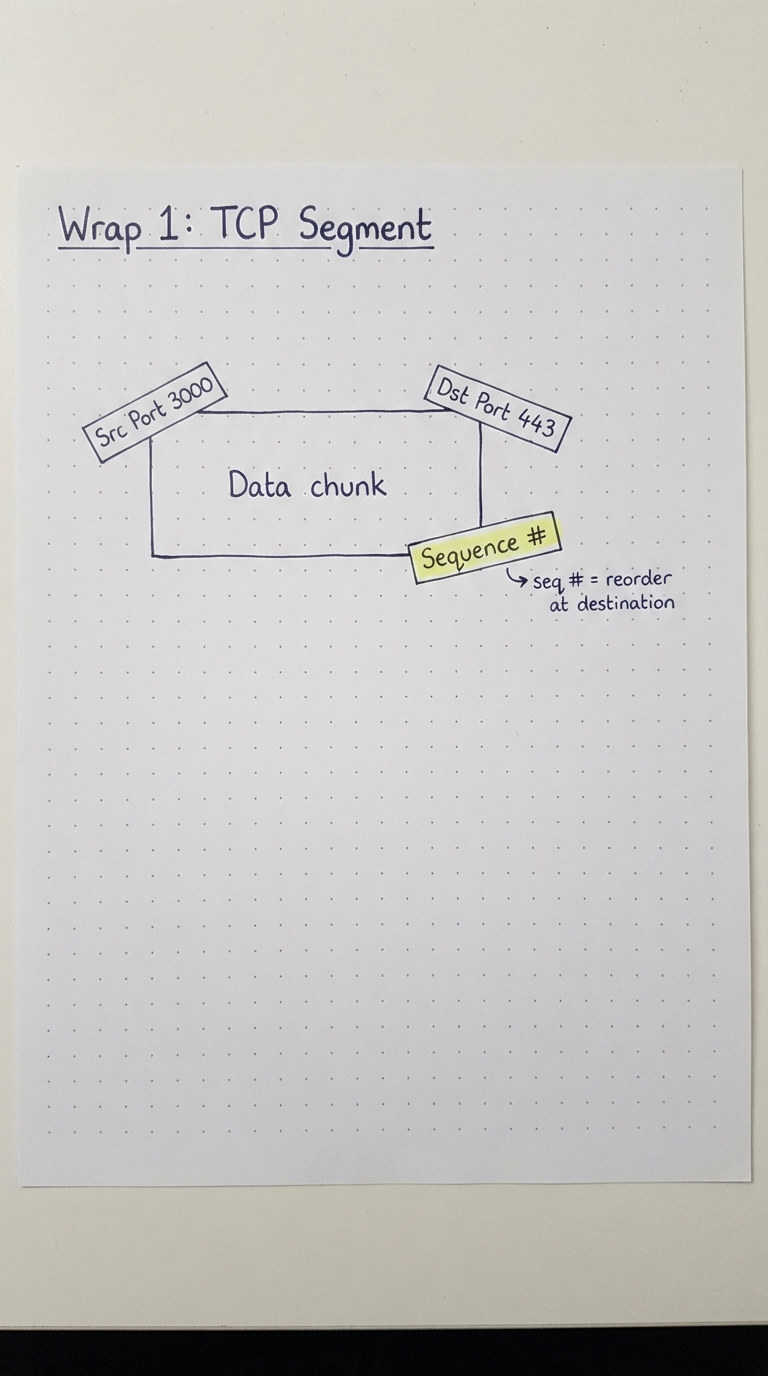 Wrap 1: TCP Segment
Src Port 3000
Dst Port 443
Data chunk
Sequence #
seq # = reorder
at destination